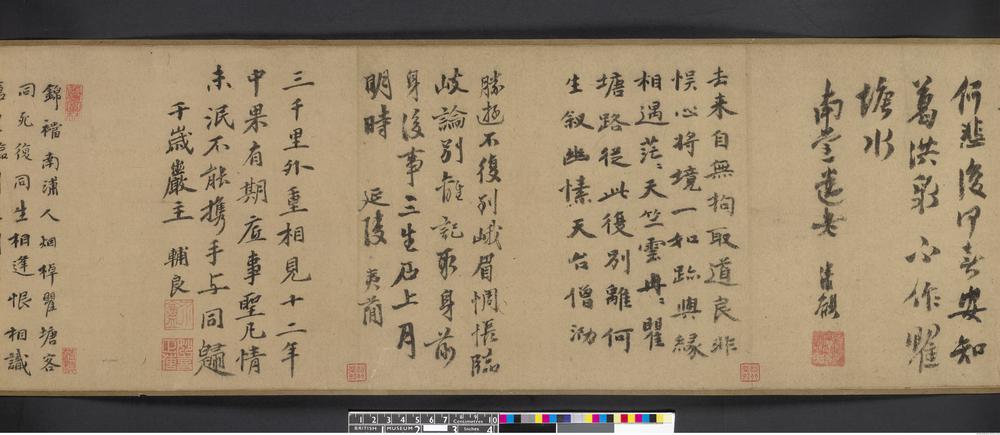 何悲後甲喜安知
葛洪泉不作瞿
塘水
南堂遺老
清欲
去来自無拘取道良非
悮心將境一如跡與縁
相遇茫〻天竺雲冉〻瞿
塘路從此後別離何
生叙幽愫天台僧
勝遊不復到峨眉惆悵臨
岐論別離記取身前
身後事三生石上月
明時
延陵
夷簡
三千里外重相見十二年
中果有期応事聖凡情
未泯不能携手与同歸
千嵗巖主
輔良
錦襠南浦人烟棹瞿塘客
同死復同生相逢恨相識
1 2 3 4 5 6 7 8 9 10
Centimetres
BRITISH MUSEUM
1 2 3 4
Inches